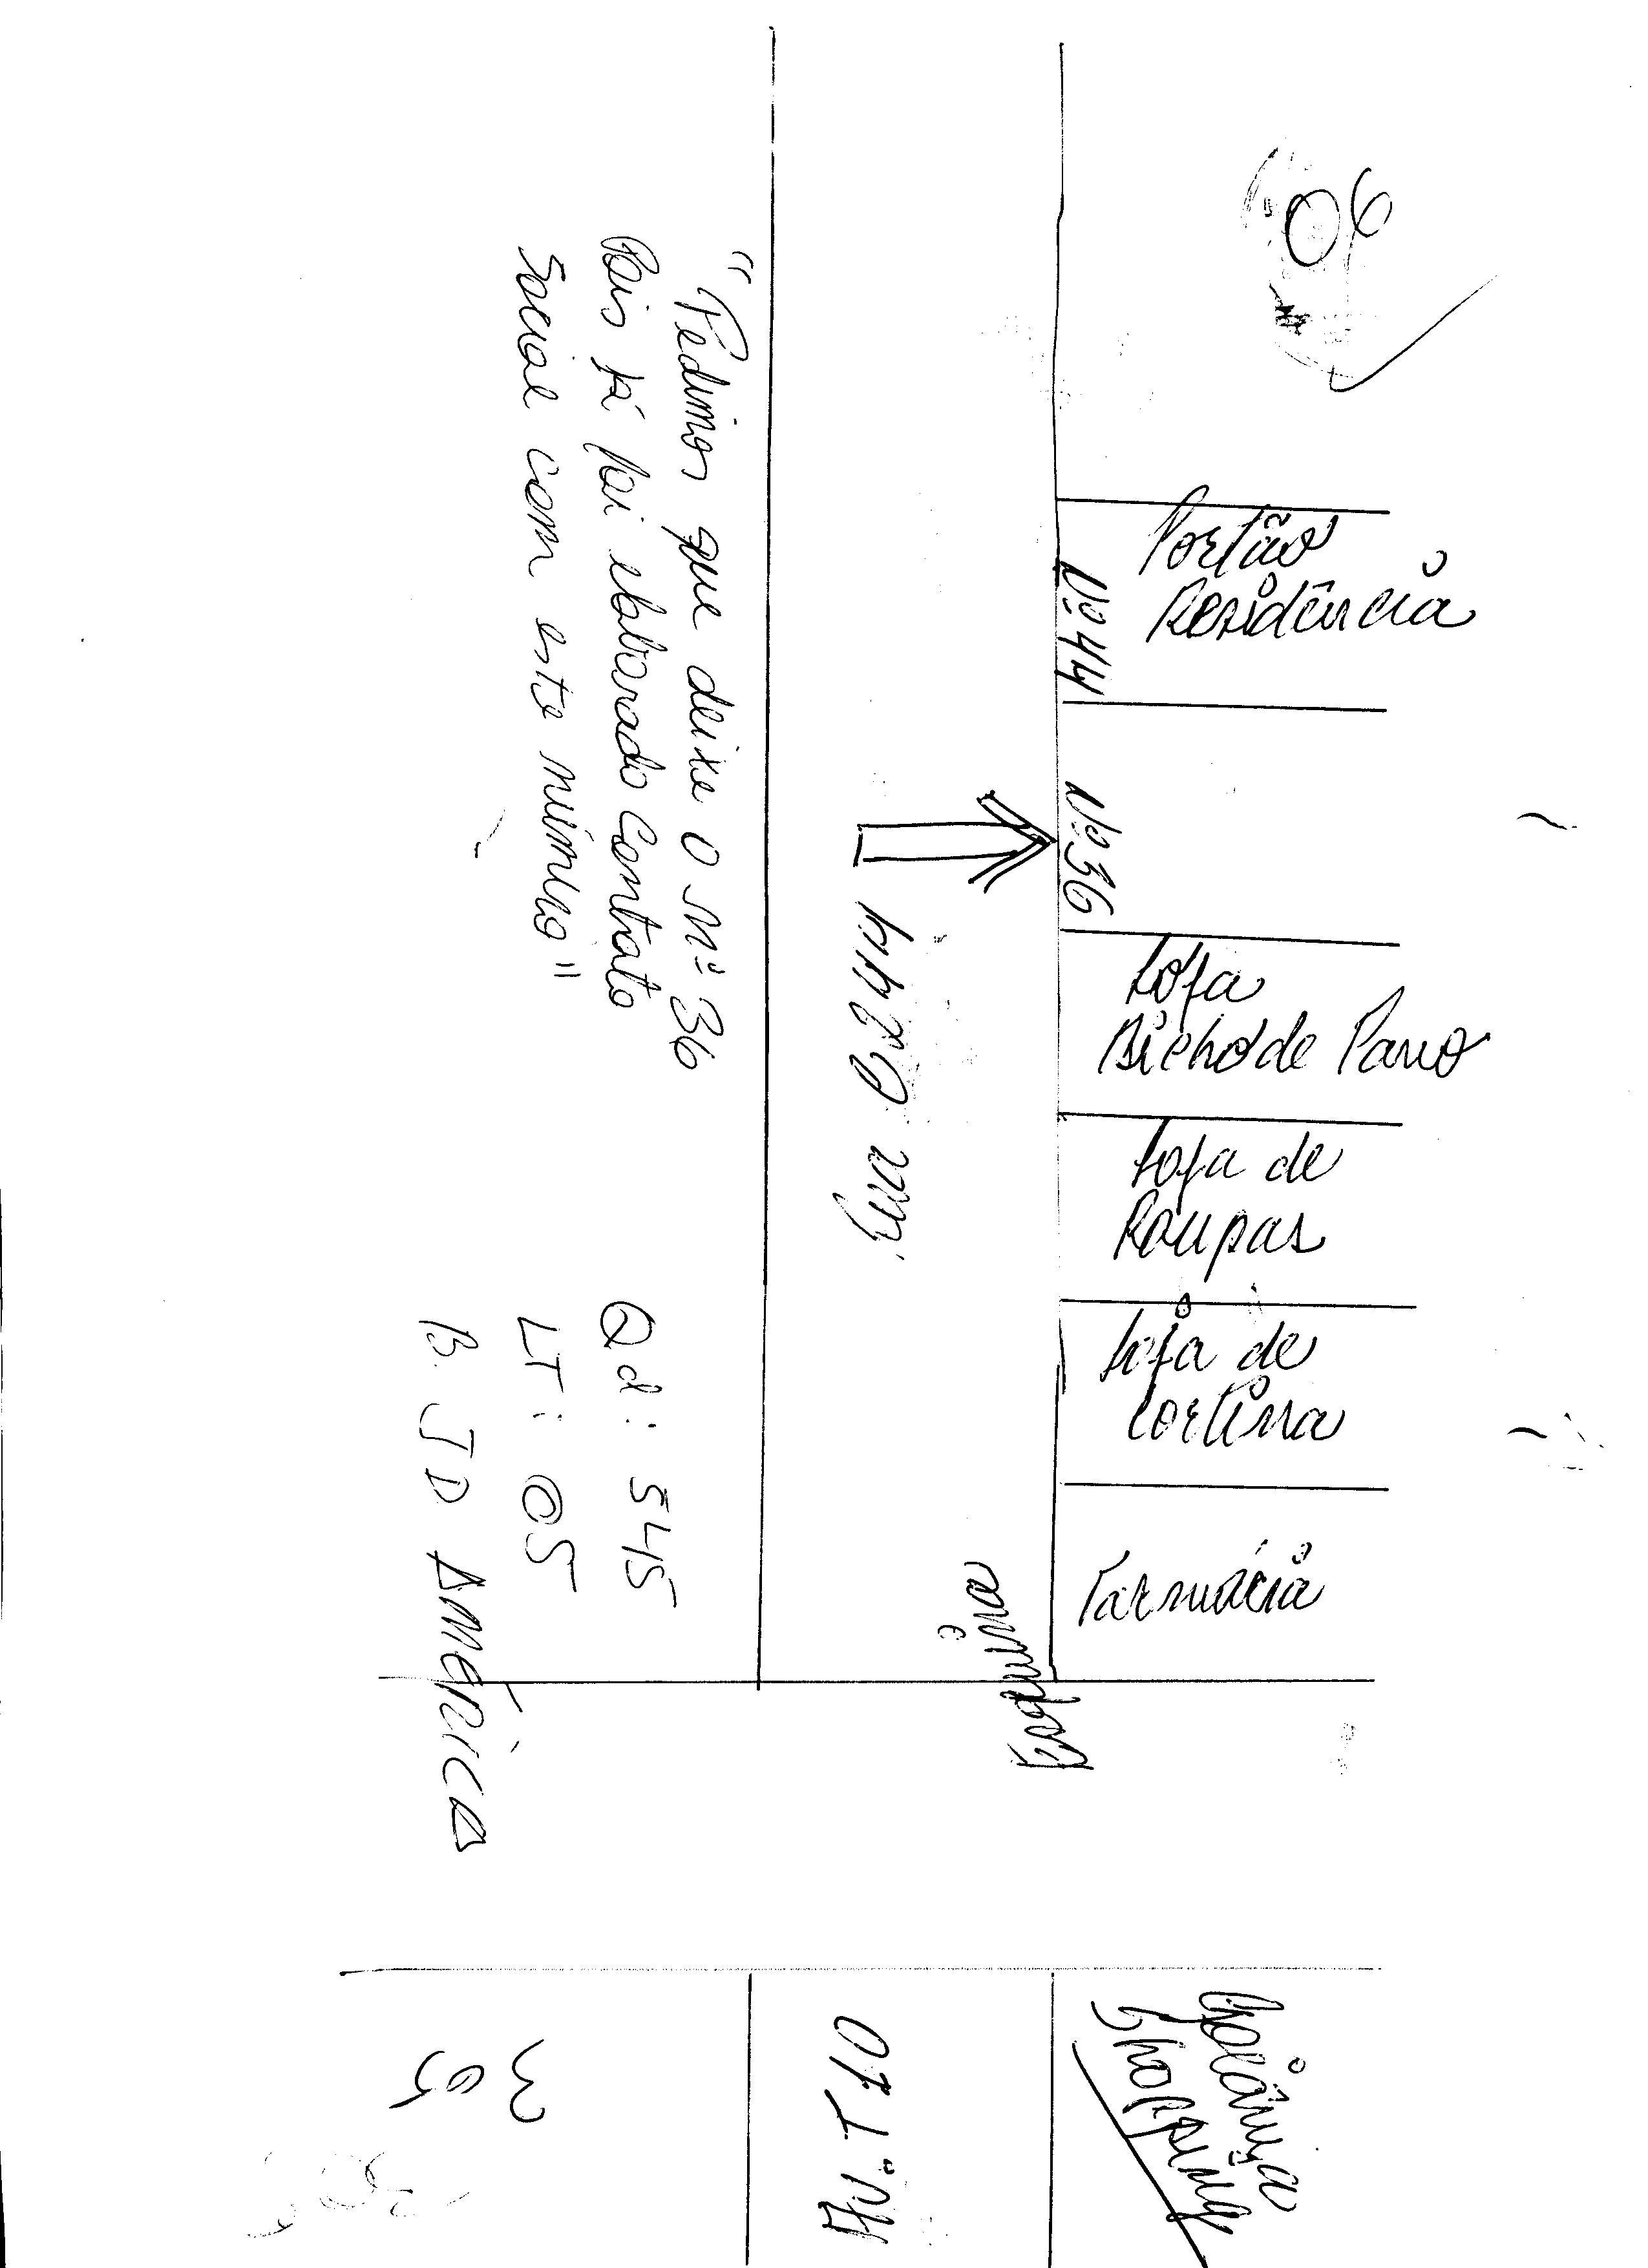 06
Portão
Residência
Nº 44
Nº 36
Loja
Bicho de Pano
Loja de
Roupas
Loja de
Cortina
Farmácia
Esquina
Rua C 244
"Pedimos que deixe o nº 36
Pois já foi elaborado Contrato
Social com este número"
Qd: 545
LT: 05
B. JD América
Av. T 10
Goiânia
Shopping